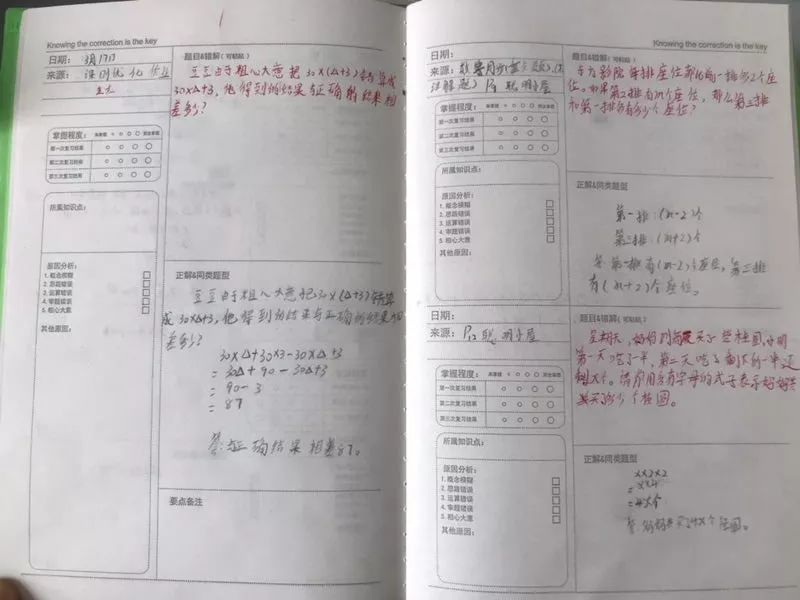 1
Knowing the correction is the key
日期: 3月17日
来源: 课时优化作业
题目&错解(可粘贴)
豆豆由于粗心大意把30×(△+3)错算成
30×△+3,他得到的结果与正确的结果相
差多少?
掌握程度:
未掌握 完全掌握
第一次复习结果
第二次复习结果
第三次复习结果
所属知识点:
原因分析:
1. 概念模糊
2. 思路错误
3. 运算错误
4. 审题错误
5. 粗心大意
其他原因:
正解&同类题型
豆豆由于粗心大意把30×(△+3)错算
成30×△+3,他得到的结果与正确的结果相
差多少?
30×△+30×3-30×△+3
=30△+90-30△+3
=90-3
=87
答:与正确结果相差87。
要点备注
Knowing the correction is the key
日期:
来源:
P9 聪明小屋
题目&错解(可粘贴)
每排座位都比前一排多2个座
位。如果第2排有m个座位,那么第三排
和第一排各有多少个座位?
掌握程度:
未掌握 完全掌握
第一次复习结果
第二次复习结果
第三次复习结果
所属知识点:
原因分析:
1. 概念模糊
2. 思路错误
3. 运算错误
4. 审题错误
5. 粗心大意
其他原因:
正解&同类题型
第一排:(m-2)个
第三排:(m+2)个
答:第一排有(m-2)个座位,第三排
有(m+2)个座位。
日期:
来源: P12 聪明小屋
题目&错解(可粘贴)
星期天,妈妈到商店买了一些桂圆,小明
第一天吃了一半,第二天吃了剩下的一半,还
剩x个。请你用含有字母的式子表示妈妈共
买了多少个桂圆。
掌握程度:
未掌握 完全掌握
第一次复习结果
第二次复习结果
第三次复习结果
所属知识点:
原因分析:
1. 概念模糊
2. 思路错误
3. 运算错误
4. 审题错误
5. 粗心大意
其他原因:
正解&同类题型
x×2×2
=x×4
=4x个
答:妈妈共买了4x个桂圆。